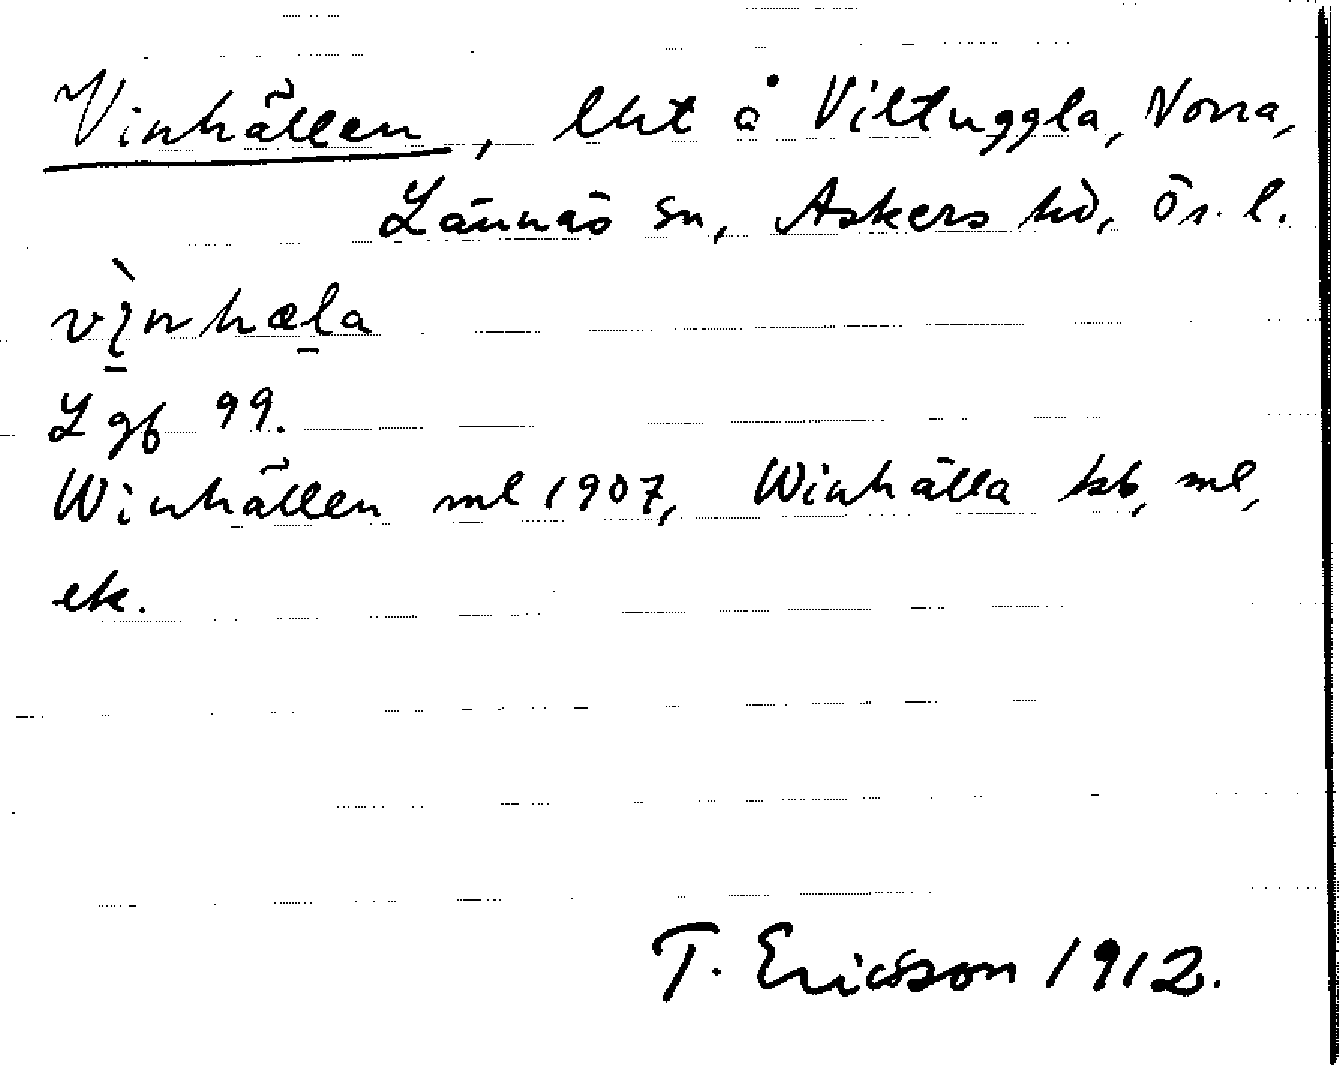 Vinhällen, lht å Viltuggla, Norra,
Lännäs sn, Askers hd, Ör. l.
vìnhæla
Lgb 99.
Winhällen ml 1907, Winhälla kb, ml,
ek.
T. Ericsson 1912.